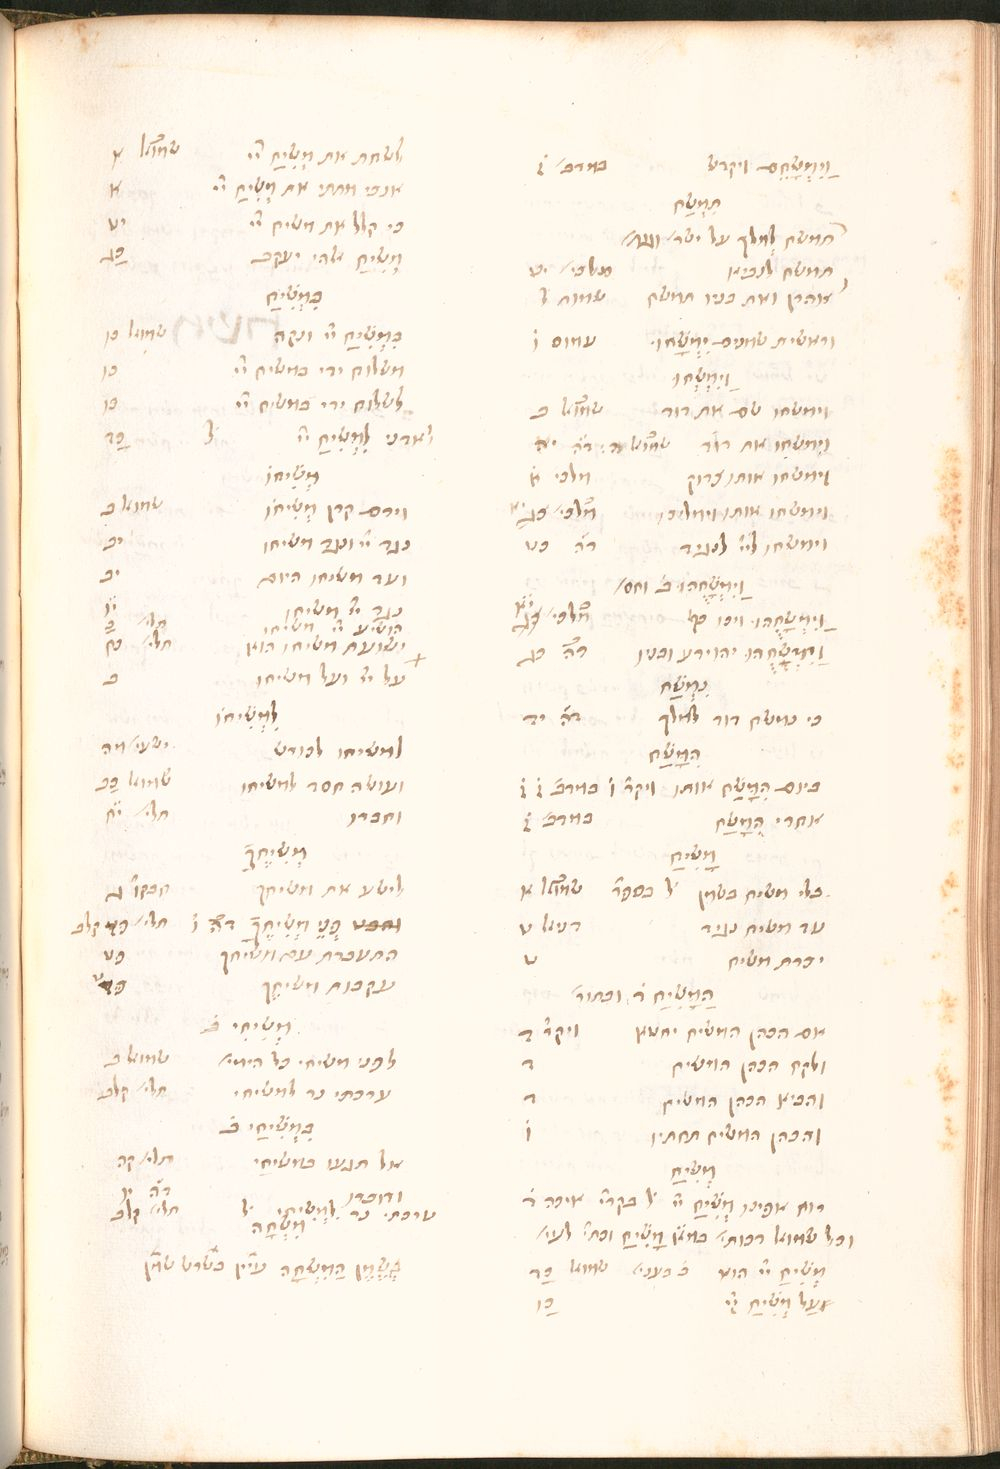 וַיִּמְשָׁחֵם ויקדש במדב׳ ז
תִּמְשַׁח
תמשח למלך על ישר׳
תמשח לנביא מלכי׳ יט
ואהרן ואת בניו תמשח שמות ל
וראשית שמנים יִמְשָׁחוּ עמוס ו
וַיִּמְשְׁחוּ
וימשחו שם את דוד שמואל ב
וַיִּמְשְׁחוּ את דוד שמואל ה דה יא
וימשחו אותו צדוק מלכי א
וימשחו אותו וימליכו מלכי׳
וימשחו לי״י לנגיד דה כט
וַיִּמְשָׁחֻהוּ ב וחס׳
וַיִּמְשָׁחֻהוּ ויכו כף מלכי׳
וַיִּמְשָׁחֻהוּ יהוידע ובניו דה כג
נִמְשַׁח
כי נמשח דוד למלך דה יד
הִמָּשַׁח
ביום הִמָּשַׁח אותו ויקר׳ ו במדב׳ ז
אחרי הִמָּשַׁח במדב׳ ז
מָשִׁיחַ
בלי משיח בשמן שמואל א
עד משיח נגיד דניאל ט
יכרת משיח ט
הַמָּשִׁיחַ ד וכתור׳
אם הכהן המשיח יחטא ויקר׳ ד
ולקח הכהן המשיח ד
והביא הכהן המשיח ד
והכהן המשיח תחתיו ו
מְשִׁיחַ
רוח אפינו מְשִׁיחַ י״י איכה ד
וכל שמואל דכות׳
מְשִׁיחַ י״י הוא שמואל כד
על מְשִׁיחַ י״י כו
לשחת את מְשִׁיחַ י״י שמואל א
אנכי מתתי את מְשִׁיחַ י״י א
כי קלל את משיח י״י יט
מְשִׁיחַ אלהי יעקב כג
בִּמְשִׁיחַ
בִּמְשִׁיחַ י״י ונקה שמואל כו
משלוח ידי במשיח י״י כו
לשלוח ידי במשיח י״י כו
לאדני לִמְשִׁיחַ י״י כד
מְשִׁיחוֹ
וירם קרן מְשִׁיחוֹ שמואל ב
נגד י״י ונגד משיחו יב
ועד משיחו היום יב
נגד י״י משיחו
הושיע י״י משיחו תלי׳ כ
ישועות משיחו הוא תלי׳ כח
על י״י ועל משיחו ב
לִמְשִׁיחוֹ
למשיחו לכורש ישעי׳ מה
ועושה חסד למשיחו שמואל כב
וחברו תלי׳ יח
מְשִׁיחֶךָ
לישע את משיחך חבקו׳ ג
והבט פְּנֵי מְשִׁיחֶךָ דה ו תלי׳ קלב
התעברת עם משיחך פט
עקבות משיחך פט
מְשִׁיחִי ב
לפני משיחי כל הימי׳ שמואל ב
ערכתי נר למשיחי תלי׳ קלב
בִּמְשִׁיחַי ב
אל תגעו במשיחי תלי׳ קה
וחברו דה יו
ערכתי נר לִמְשִׁיחִי תלי׳ קלב
מִשְׁחָה
בְּשֶׁמֶן הַמִּשְׁחָה עיין בשרש שמן